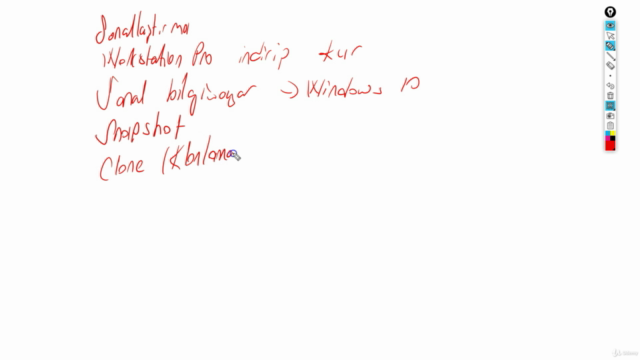 Sanallaştırma
Workstation Pro indirip kur
Sanal bilgisayar → Windows 10
Snapshot
Clone (Klonlama